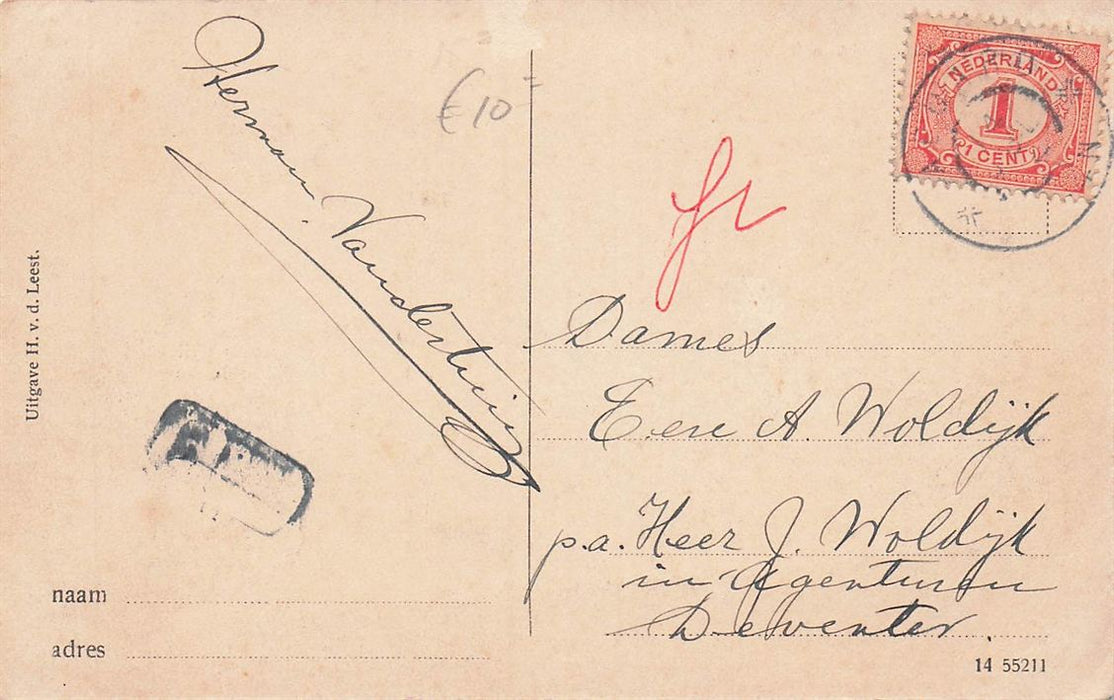 Herman
€10-
NEDERLAND
1
1 CENT
Uitgave H. v. d. Leest.
Dames
E. en A. Woldijk
p.a. Heer J. Woldijk
in Agenturen
Deventer.
naam
adres
14 55211